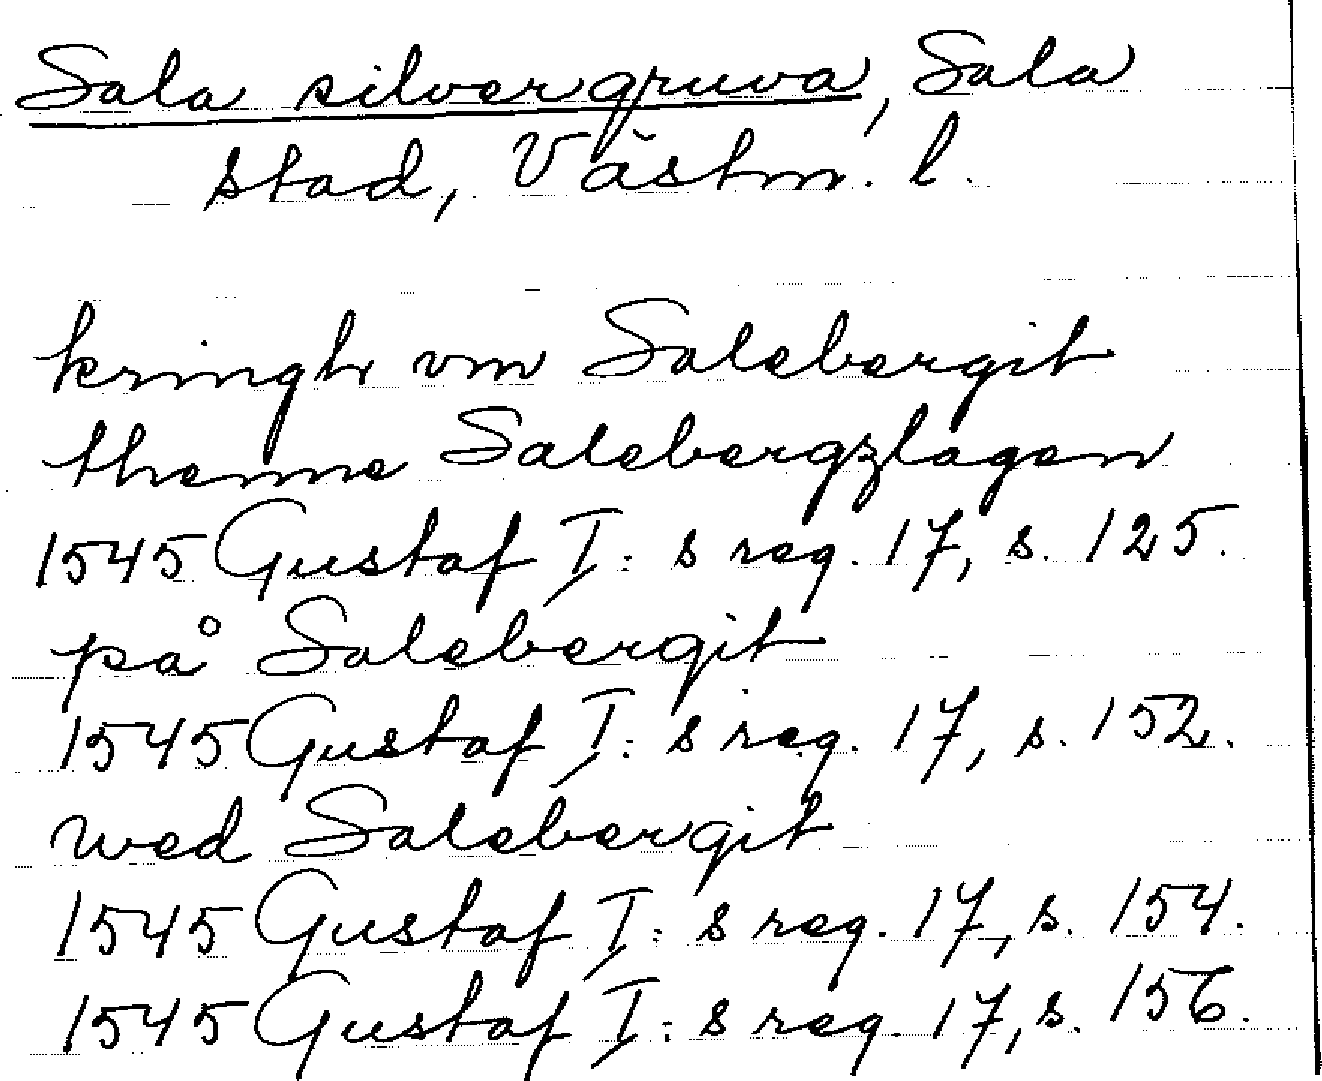 Sala silvergruva, Sala
stad, Västm. l.
kringh vm Salebergit
thenne Salebergzlagen
1545 Gustaf I:s reg. 17, s. 125.
på Salebergit
1545 Gustaf I:s reg. 17, s. 152.
wed Salebergit
1545 Gustaf I:s reg. 17, s. 154.
1545 Gustaf I:s reg. 17, s. 156.